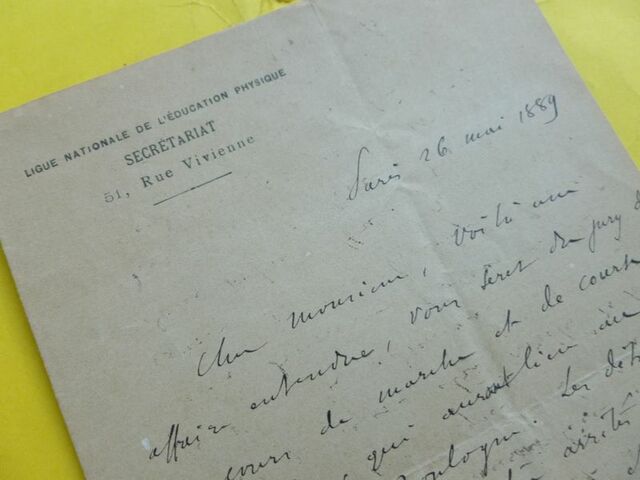 LIGUE NATIONALE DE L'ÉDUCATION PHYSIQUE
SECRÉTARIAT
51, Rue Vivienne
Paris 26 mai 1889
Cher monsieur, Voilà une
affaire entendue, vous serez du jury
cours de marche et de course
qui auront lieu au
Boulogne. Les
arrêté